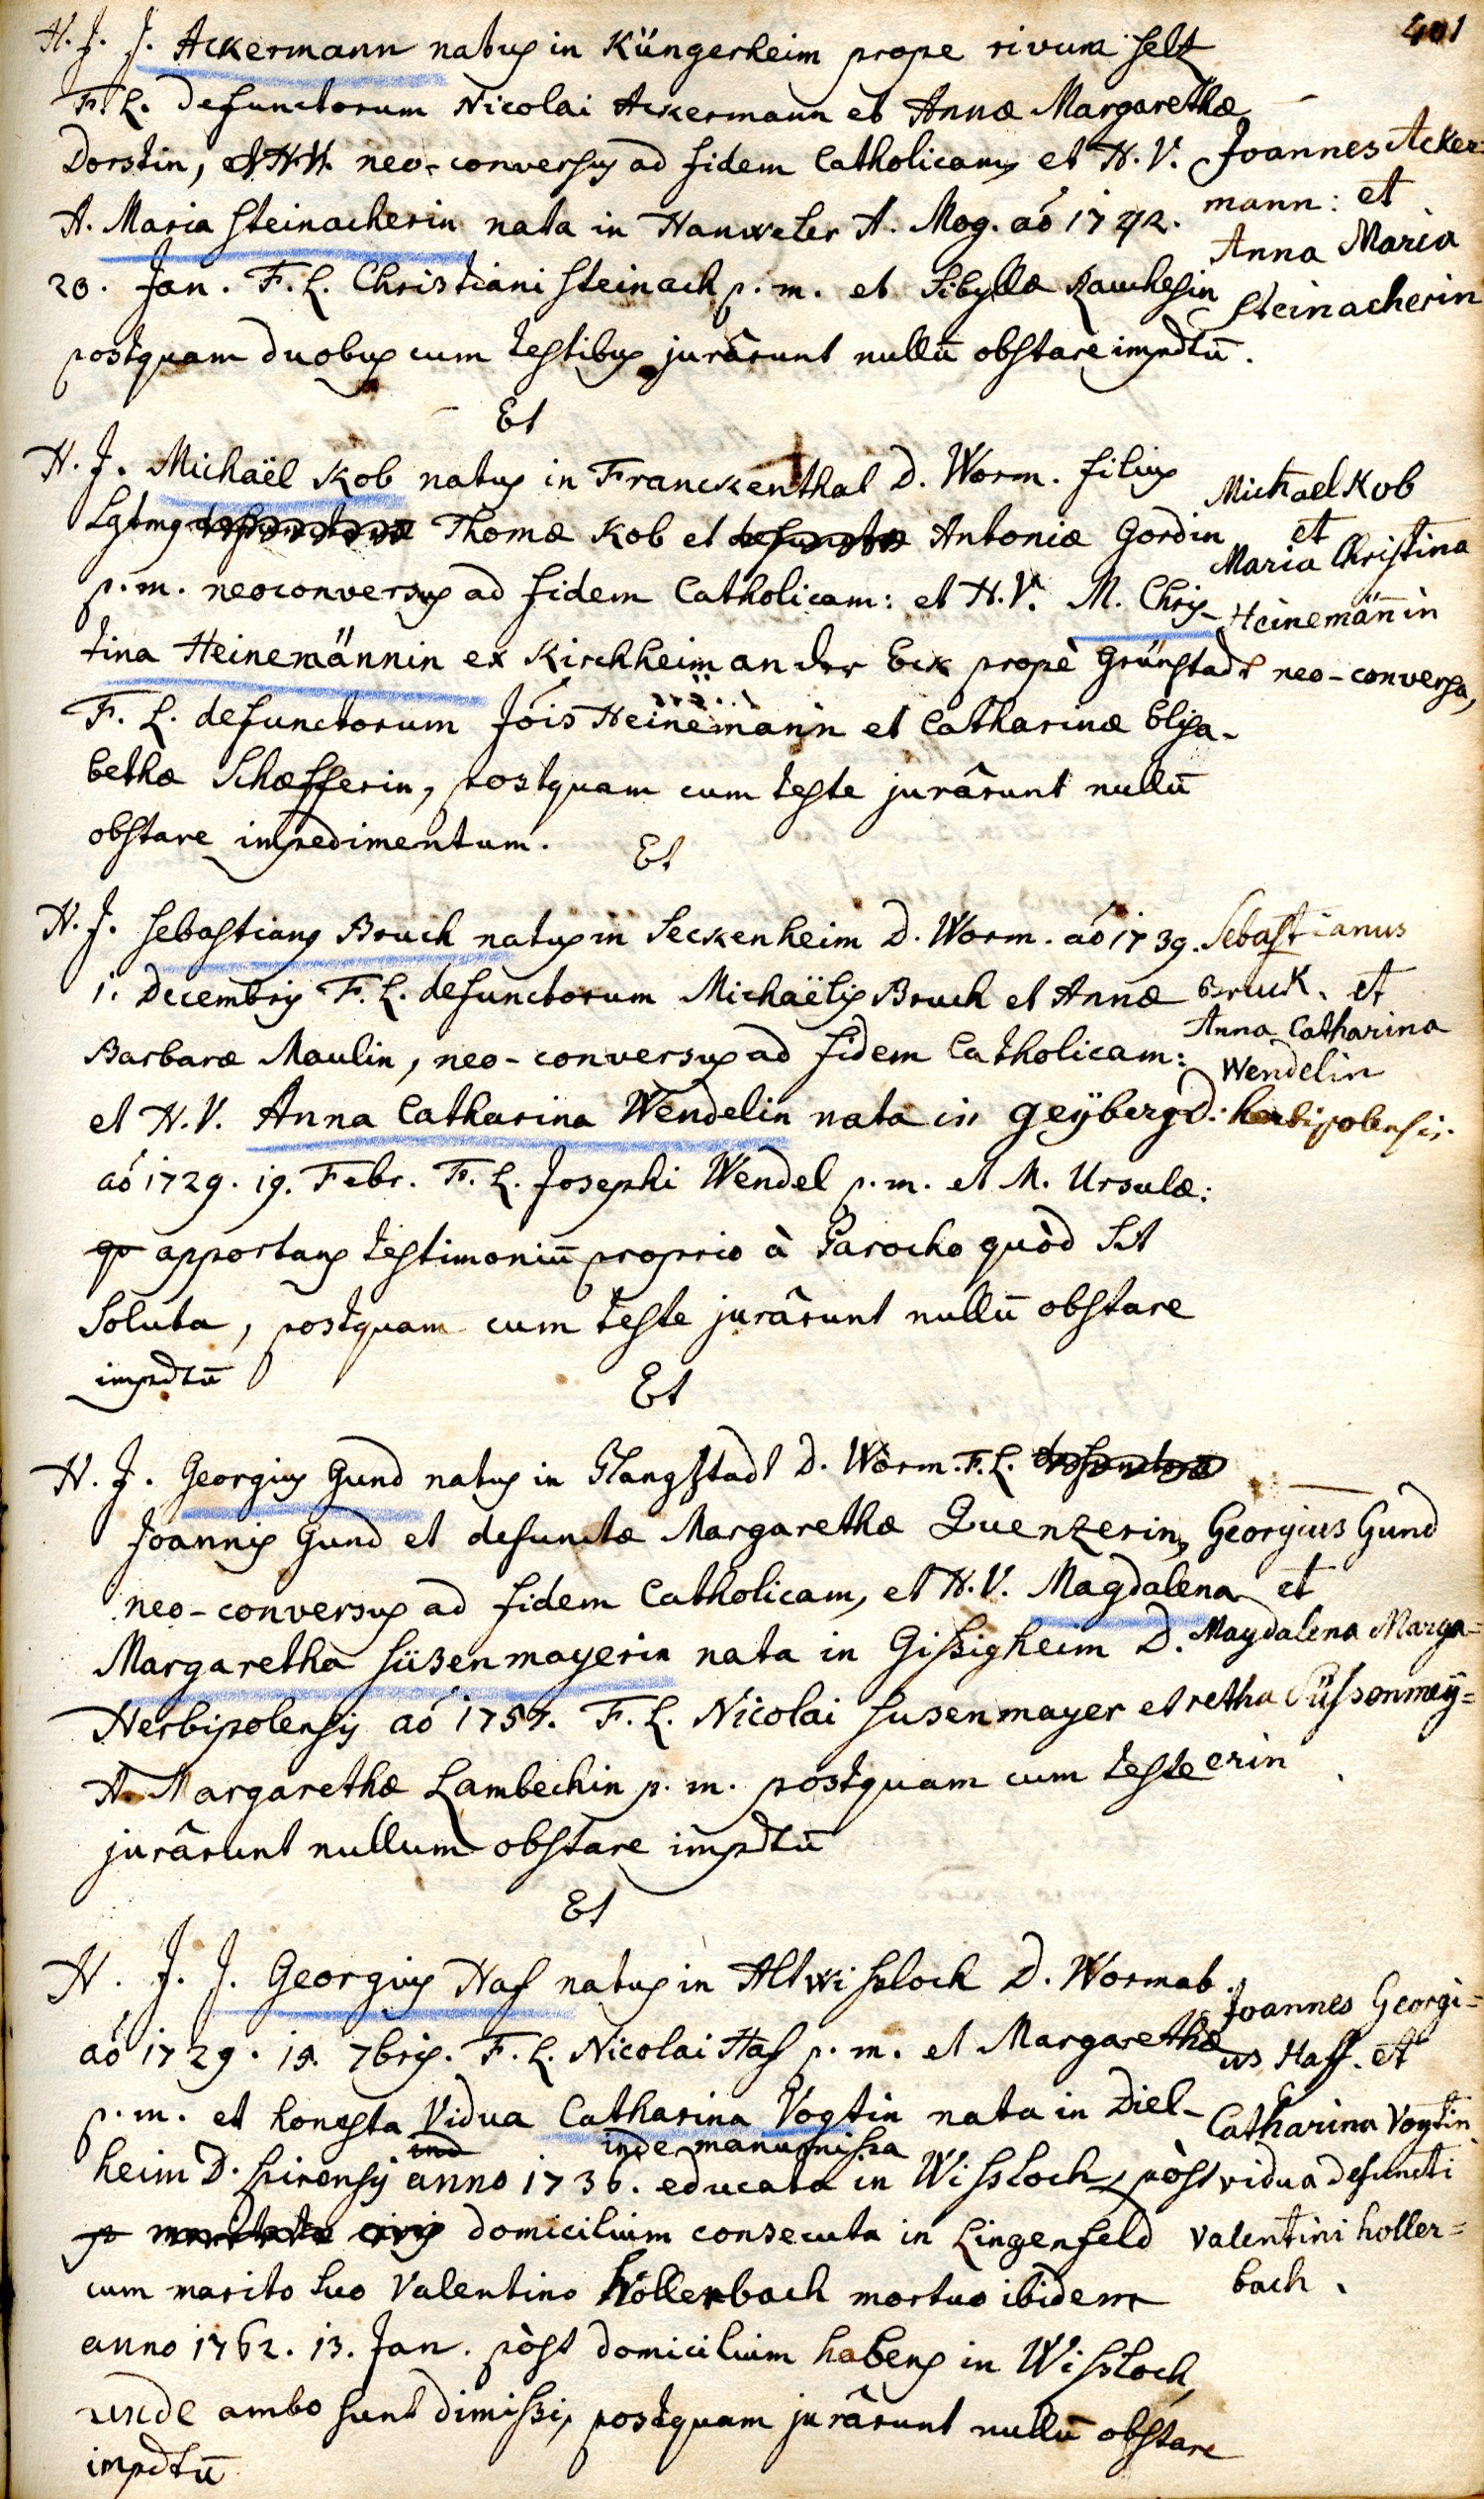 401
H. J. J. Ackermann natus in Küngerheim prope rivum Selz
F. L. defunctorum Nicolai Ackermann et Annæ Margarethæ
Dorstin, et H. H. neo-conversus ad fidem Catholicam, et H. V.
A. Maria Steinacherin nata in Hanweler A. Mog. aō 1742.
20. Jan. F. L. Christiani Steinach p. m. et Sibyllæ
postquam duobus cum testibus jurârunt nullū obstare impdtū.
Joannes Acker=
mann: et
Anna Maria
Steinacherin
Et
H. J. Michaël Kob natus in Franckenthal D. Worm. filius
Lgtmg Thomæ Kob et defunctæ Antoniæ Gordin
p. m. neoconversus ad fidem Catholicam: et H. V. M. Chris-
tina Heinemännin ex Kirchheim an der Eck propè Grünstadt
F. L. defunctorum Jōis Heinemann et Catharinæ Elisa-
bethæ Schæfferin, postquam cum teste jurârunt nullū
obstare impedimentum.
Michael Kob
et
Maria Christina
Heinemännin
neo-conversa,
Et
H. J. Sebastianus Bruch natus in Seckenheim D. Worm. aó 1739.
1. Decembris F. L. defunctorum Michaëlis Bruch et Annæ
Barbaræ Maulin, neo-conversus ad fidem Catholicam:
et H. V. Anna Catharina Wendelin nata in geÿberg D: herbipolensis.
aó 1729. 19. Febr. F. L. Josephi Wendel p. m. et M. Ursulæ:
qu apportans testimoniū proprio à Parocho quòd sit
Soluta, postquam cum teste jurârunt nullū obstare
impdtū
Sebastianus
Bruck. et
Anna Catharina
Wendelin
Et
H. J. Georgius Gund natus in Plangstadt D. Worm. F. L.
Joannis Gund et defunctæ Margarethæ Quenzerin,
neo-conversus ad fidem Catholicam, et H. V. Magdalena
Margaretha Süsenmayerin nata in Gissigheim D.
Herbipolensis aó 1757. F. L. Nicolai Susenmayer et
A. Margarethæ Lambechin p. m. postquam cum teste
jurârunt nullum obstare impdtū
Georgius Gund
et
Magdalena Marga=
retha Süssenmeÿ=
erin
Et
H. J. J. Georgius Haf natus in Altwissloch D. Wormat.
aó 1729. 7bris. F. L. Nicolai Haf p. m. et Margarethæ
p. m. et honesta Vidua Catharina Vogtin nata in Diel-
ind inde manumissa
heim D. Spirensis anno 1736. educata in Wissloch, pòst
domicilium consecuta in Lingenfeld
cum marito suo Valentino Hollerbach mortuo ibidem
anno 1762. 13. Jan. pòst domicilium habens in Wissloch,
unde ambo sunt dimissi, postquam jurârunt nullū obstare
impdtū
Joannes Georgi=
us Haff. et
Catharina Vogtin
vidua defuncti
Valentini holler=
bach.